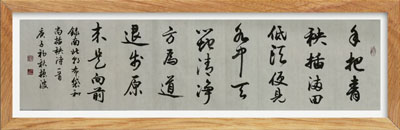 手把青
秧插满田
低头便见
水中天
清净
方为道
退步原
来是向前
布袋和
尚插秧诗一首
庚子初秋